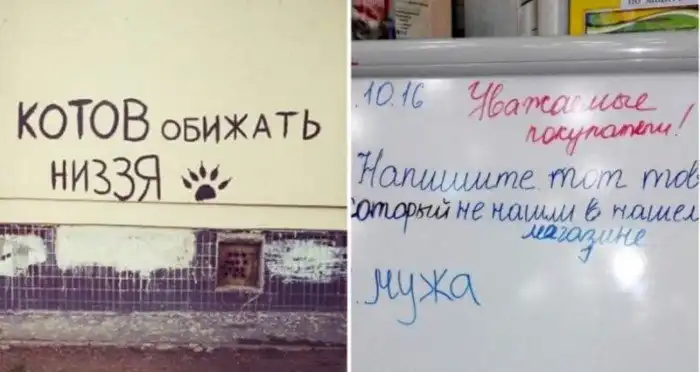 КОТОВ ОБИЖАТЬ
НИЗЗЯ
.10.16
Уважаемые
покупатели!
Напишите тот тов
который не нашли в нашем
магазине
. мужа